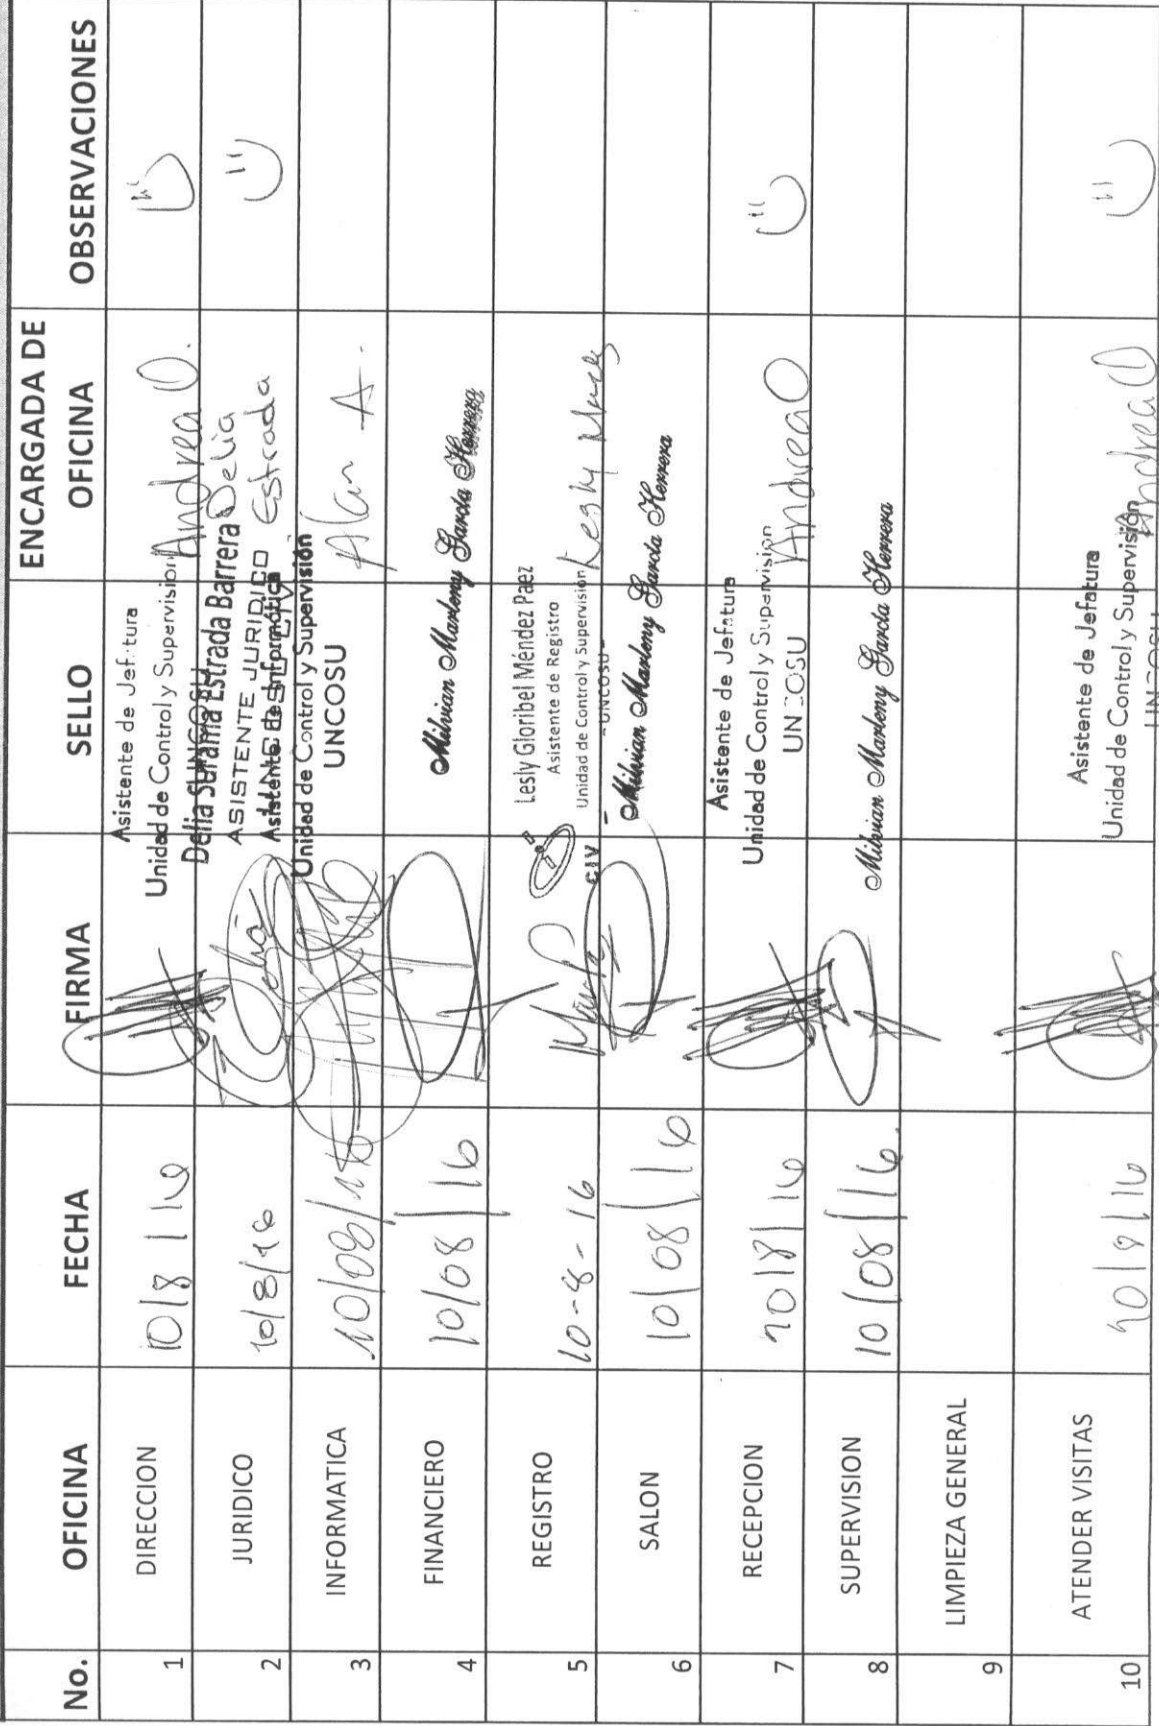 No. OFICINA FECHA FIRMA SELLO ENCARGADA DE OFICINA OBSERVACIONES
1 DIRECCION 10/8/16 Asistente de Jefatura Andrea O.
Unidad de Control y Supervisión
2 JURIDICO 10/8/16 Delia Surama Estrada Barrera Delia Estrada
ASISTENTE JURIDICO
3 INFORMATICA 10/08/16 Asistente de Informática Alan A.
Unidad de Control y Supervisión
UNCOSU
4 FINANCIERO 10/08/16 Milvian Marleny García Herrera
5 REGISTRO 10-8-16 Lesly Gloribel Méndez Paez Lesly
Asistente de Registro
Unidad de Control y Supervisión
CIV - UNCOSU -
6 SALON 10/08/16 Milvian Marleny García Herrera
7 RECEPCION 10/8/16 Asistente de Jefatura Andrea O
Unidad de Control y Supervisión
UNCOSU
8 SUPERVISION 10/08/16 Milvian Marleny García Herrera
9 LIMPIEZA GENERAL
10 ATENDER VISITAS 10/8/16 Asistente de Jefatura Andrea O
Unidad de Control y Supervisión
UNCOSU